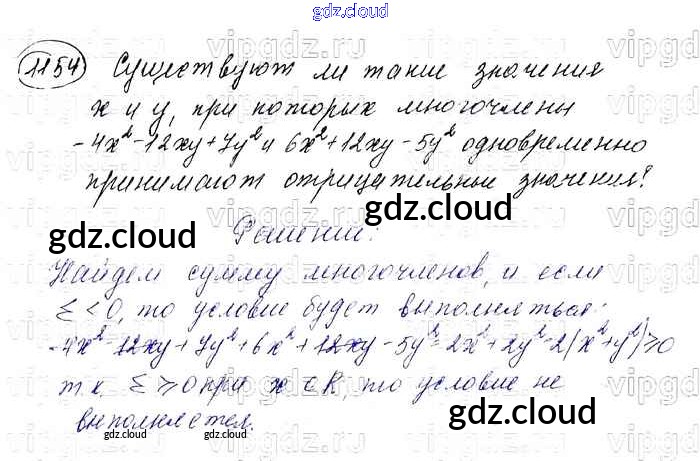 gdz.cloud
1154 Существуют ли такие значения
x и y, при которых многочлены
-4x²-12xy+7y² и 6x²+12xy-5y² одновременно
принимают отрицательные значения?
gdz.cloud
gdz.cloud
Решение:
Найдем сумму многочленов, и если
Σ<0, то условие будет выполняться:
-4x²-12xy+7y²+6x²+12xy-5y²=2x²+2y²=2(x²+y²)≥0
т.к. Σ≥0 при x∈R, то условие не
выполняется.
gdz.cloud
gdz.cloud
gdz.cloud